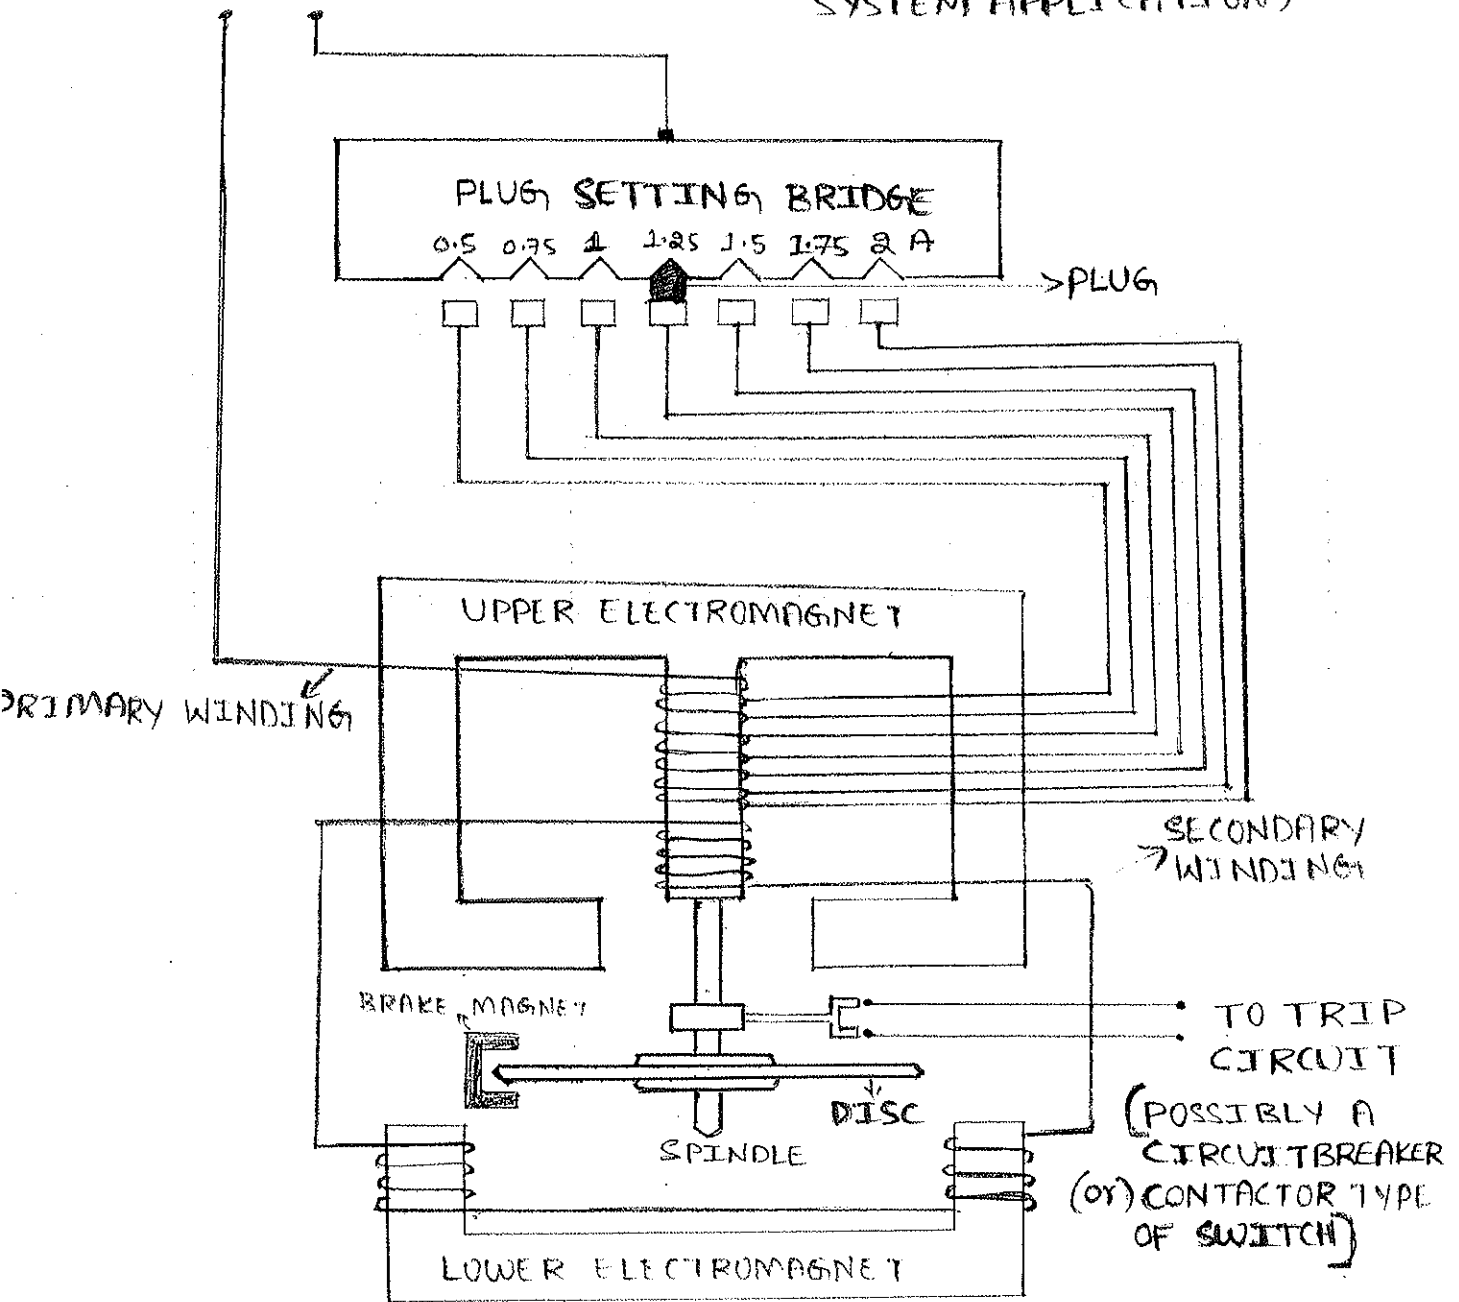 SYSTEM APPLICATION)
PLUG SETTING BRIDGE
0.5 0.75 1 1.25 1.5 1.75 2 A
PLUG
UPPER ELECTROMAGNET
PRIMARY WINDING
SECONDARY
WINDING
BRAKE MAGNET
TO TRIP
CIRCUIT
DISC
(POSSIBLY A
SPINDLE
CIRCUITBREAKER
(or) CONTACTOR TYPE
OF SWITCH]
LOWER ELECTROMAGNET